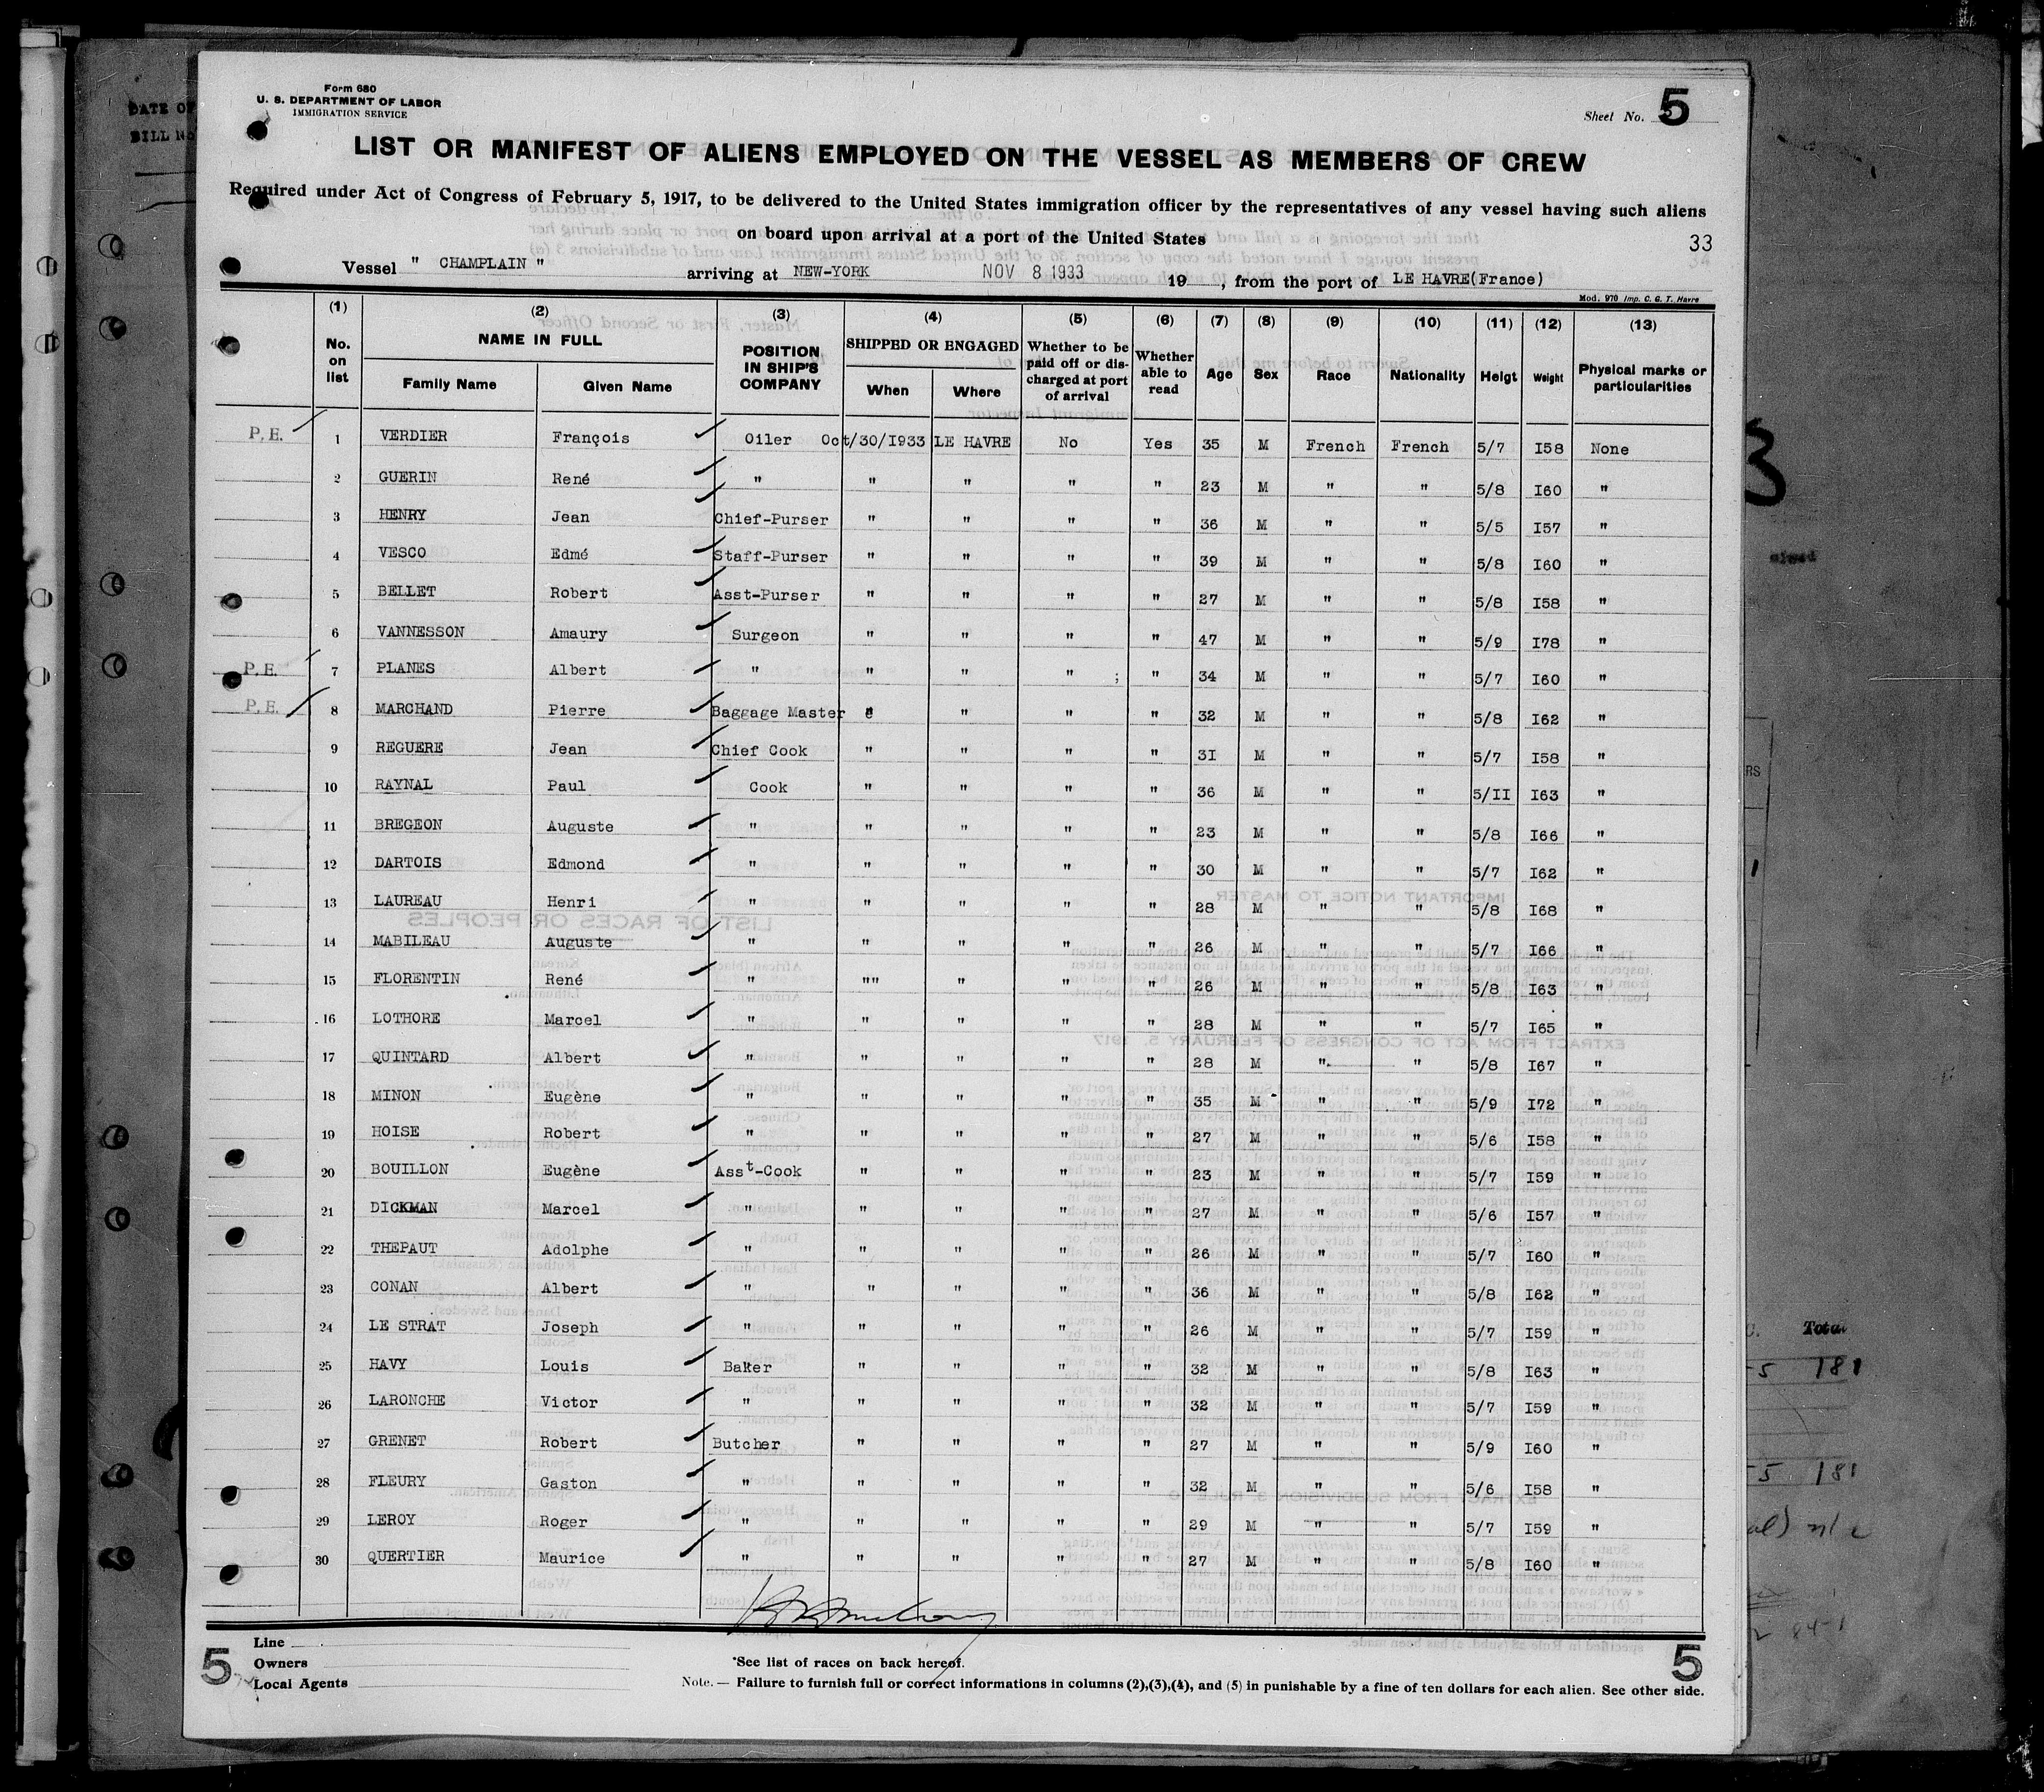 Form 680
U. S. DEPARTMENT OF LABOR
IMMIGRATION SERVICE
Sheet No. 5
LIST OR MANIFEST OF ALIENS EMPLOYED ON THE VESSEL AS MEMBERS OF CREW
Required under Act of Congress of February 5, 1917, to be delivered to the United States immigration officer by the representatives of any vessel having such aliens
on board upon arrival at a port of the United States
33
Vessel " CHAMPLAIN " arriving at NEW-YORK NOV 8 1933 19 , from the port of LE HAVRE(France)
Mod. 970 Imp. C. G. T. Havre
(1) (2) (3) (4) (5) (6) (7) (8) (9) (10) (11) (12) (13)
No. on list NAME IN FULL Family Name Given Name POSITION IN SHIP'S COMPANY SHIPPED OR ENGAGED When Where Whether to be paid off or discharged at port of arrival Whether able to read Age Sex Race Nationality Helgt Weight Physical marks or particularities
P.E. 1 VERDIER François Oiler Oct/30/I933 LE HAVRE No Yes 35 M French French 5/7 I58 None
2 GUERIN René " " " " " 23 M " " 5/8 I60 "
3 HENRY Jean Chief-Purser " " " " 36 M " " 5/5 I57 "
4 VESCO Edmé Staff-Purser " " " " 39 M " " 5/8 I60 "
5 BELLET Robert Asst-Purser " " " " 27 M " " 5/8 I58 "
6 VANNESSON Amaury Surgeon " " " " 47 M " " 5/9 I78 "
P.E. 7 PLANES Albert " " " " ; " 34 M " " 5/7 I60 "
P.E. 8 MARCHAND Pierre Baggage Master " " " " 32 M " " 5/8 I62 "
9 REGUERE Jean Chief Cook " " " " 3I M " " 5/7 I58 "
10 RAYNAL Paul Cook " " " " 36 M " " 5/II I63 "
11 BREGEON Auguste " " " " " 23 M " " 5/8 I66 "
12 DARTOIS Edmond " " " " " 30 M " " 5/7 I62 "
13 LAUREAU Henri " " " " " 28 M " " 5/8 I68 "
14 MABILEAU Auguste " " " " " 26 M " " 5/7 I66 "
15 FLORENTIN René " "" " " " 26 M " " 5/8 I63 "
16 LOTHORE Marcel " " " " " 28 M " " 5/7 I65 "
17 QUINTARD Albert " " " " " 28 M " " 5/8 I67 "
18 MINON Eugène " " " " " 35 M " " 5/9 I72 "
19 HOISE Robert " " " " " 27 M " " 5/6 I58 "
20 BOUILLON Eugène Asst-Cook " " " " 23 M " " 5/7 I59 "
21 DICKMAN Marcel " " " " " 27 M " " 5/6 I57 "
22 THEPAUT Adolphe " " " " " 26 M " " 5/7 I60 "
23 CONAN Albert " " " " " 36 M " " 5/8 I62 "
24 LE STRAT Joseph " " " " " 26 M " " 5/7 I59 "
25 HAVY Louis Baker " " " " 32 M " " 5/8 I63 "
26 LARONCHE Victor " " " " " 32 M " " 5/7 I59 "
27 GRENET Robert Butcher " " " " 27 M " " 5/9 I60 "
28 FLEURY Gaston " " " " " 32 M " " 5/6 I58 "
29 LEROY Roger " " " " " 29 M " " 5/7 I59 "
30 QUERTIER Maurice " " " " " 27 M " " 5/8 I60 "
Line
Owners
Local Agents
5
*See list of races on back hereof.
Note. — Failure to furnish full or correct informations in columns (2),(3),(4), and (5) in punishable by a fine of ten dollars for each alien. See other side.
5
DATE OF
BILL No
Total
181
181